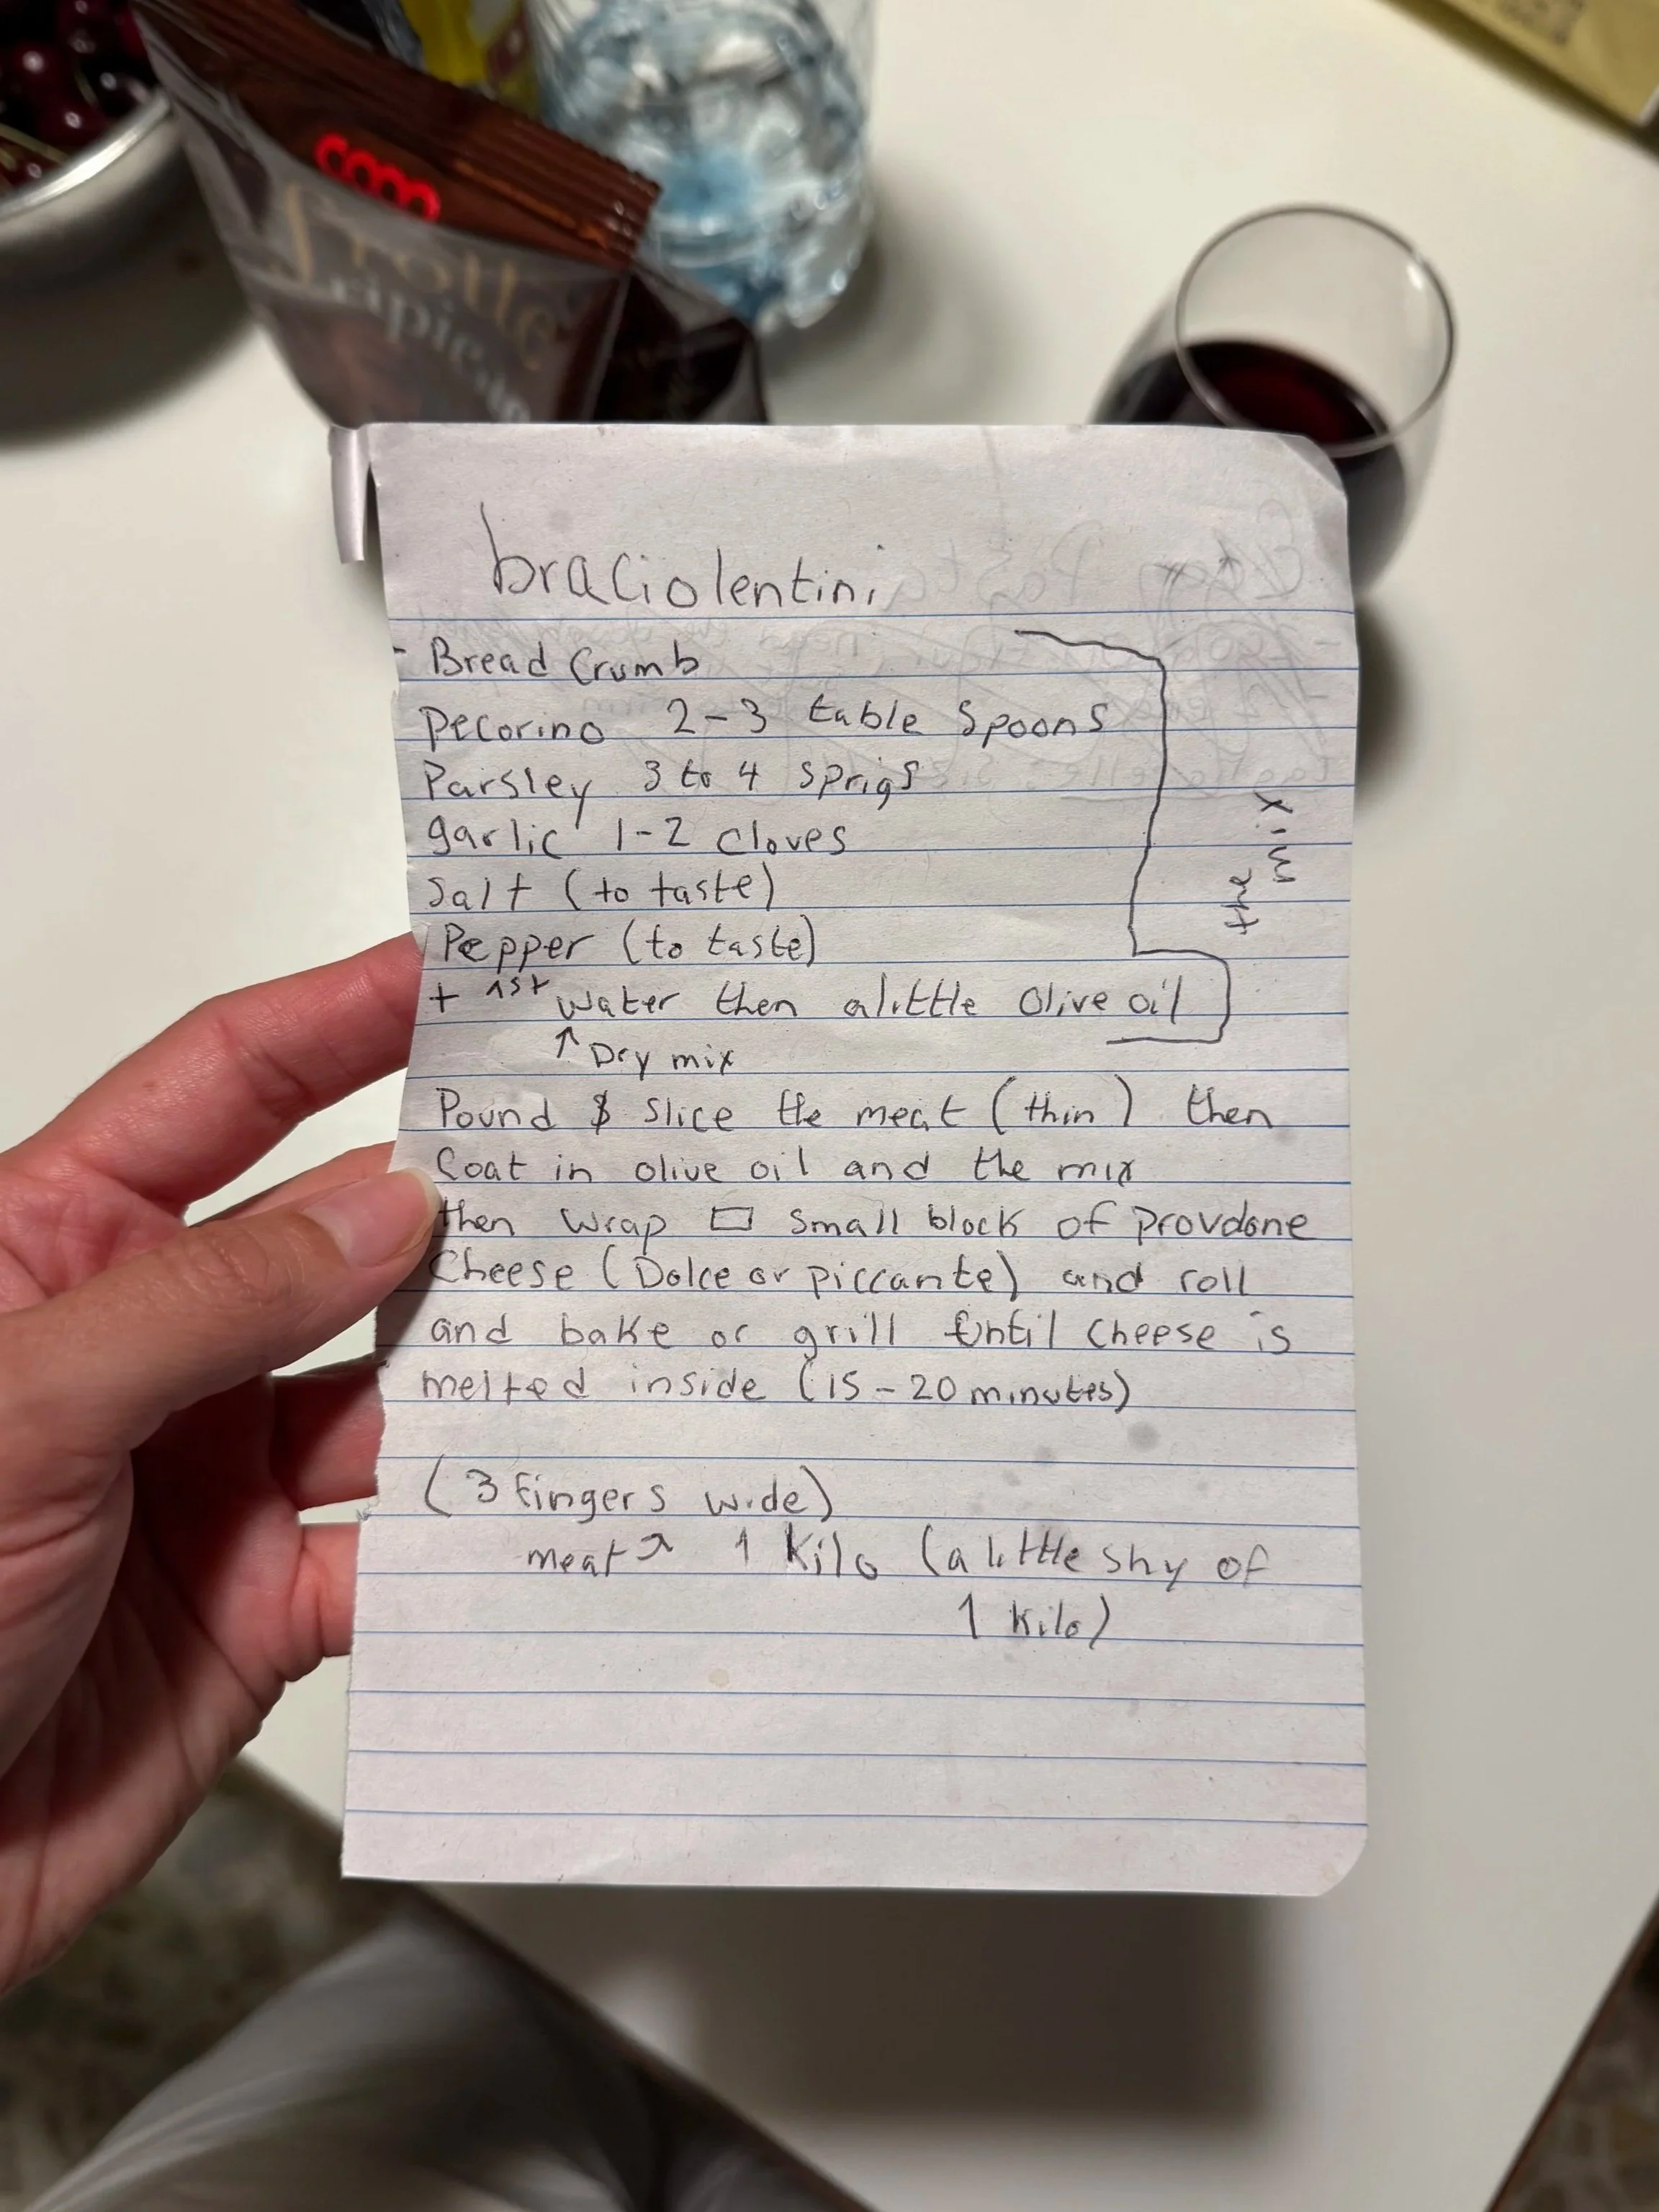 coop
frolle
ripiene
braciolentini
- Bread Crumb
Pecorino 2-3 table spoons
Parsley 3 to 4 sprigs
garlic 1-2 cloves
Salt (to taste)
Pepper (to taste)
+ 1st water then a little olive oil
↑ Dry mix
the mix
Pound & slice the meat (thin) then
Coat in olive oil and the mix
then wrap ▭ small block of provdone
Cheese (Dolce or piccante) and roll
and bake or grill until cheese is
melted inside (15-20 minutes)
(3 fingers wide)
meat ↗ 1 Kilo (a little shy of
1 Kilo)